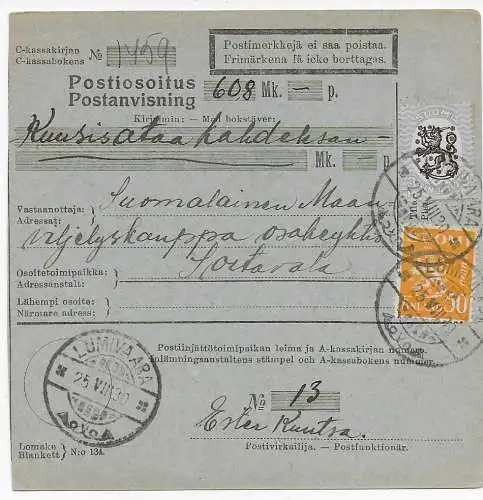 C-kassakirjan
C-kassabokens № 1459
Postimerkkejä ei saa poistaa.
Frimärkena få icke borttagas.
Postiosoitus
Postanvisning 608 Mk. — p.
Kirjaimin: — Med bokstäver:
Kuusisataa kahdeksan
Mk. — p.
Vastaanottaja:
Adressat:
Suomalainen Maan-
viljelyskauppa osakeyhtiö
Osoitetoimipaikka:
Adressanstalt:
Sortavala
Lähempi osoite:
Närmare adress:
Postiinjättötoimipaikan leima ja A-kassakirjan numero.
Inlämningsanstaltens stämpel och A-kassabokens nummer.
LUMIVAARA
25.VIII.30
№ 13
Ester Kuutsa.
Postivirkailija. — Postfunktionär.
Lomake
Blankett N:o 134.
50